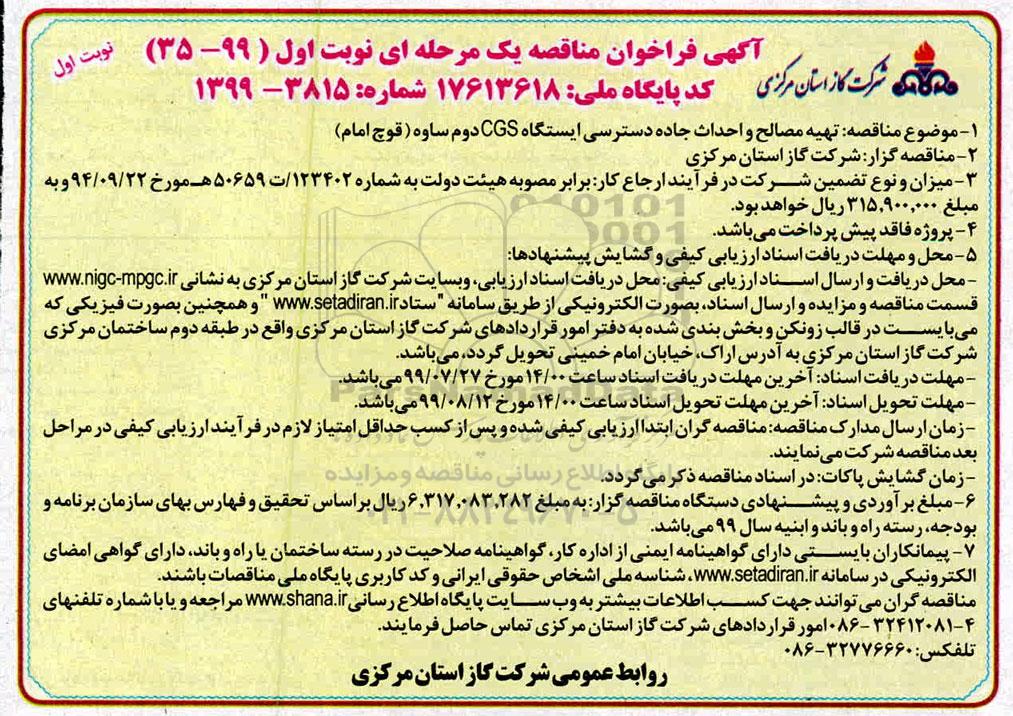 آگهی فراخوان مناقصه یک مرحله ای نوبت اول ( ۹۹- ۳۵)
نوبت اول
شرکت گاز استان مرکزی
کد پایگاه ملی: ۱۷۶۱۳۶۱۸ شماره: ۳۸۱۵- ۱۳۹۹
۱- موضوع مناقصه: تهیه مصالح و احداث جاده دسترسی ایستگاه CGS دوم ساوه ( قوچ امام)
۲- مناقصه گزار: شرکت گاز استان مرکزی
۳- میزان و نوع تضمین شرکت در فرآیند ارجاع کار: برابر مصوبه هیئت دولت به شماره ۱۲۳۴۰۲/ت ۵۰۶۵۹ هـ مورخ ۹۴/۰۹/۲۲ و به
مبلغ ۳۱۵,۹۰۰,۰۰۰ ریال خواهد بود.
۴- پروژه فاقد پیش پرداخت می‌باشد.
۵- محل و مهلت دریافت اسناد ارزیابی کیفی و گشایش پیشنهادها:
- محل دریافت و ارسال اسناد ارزیابی کیفی: محل دریافت اسناد ارزیابی، وبسایت شرکت گاز استان مرکزی به نشانی www.nigc-mpgc.ir
قسمت مناقصه و مزایده و ارسال اسناد، بصورت الکترونیکی از طریق سامانه "ستاد www.setadiran.ir " و همچنین بصورت فیزیکی که
می‌بایست در قالب زونکن و بخش بندی شده به دفتر امور قراردادهای شرکت گاز استان مرکزی واقع در طبقه دوم ساختمان مرکزی
شرکت گاز استان مرکزی به آدرس اراک، خیابان امام خمینی تحویل گردد، می‌باشد.
- مهلت دریافت اسناد: آخرین مهلت دریافت اسناد ساعت ۱۴/۰۰ مورخ ۹۹/۰۷/۲۷ می‌باشد.
- مهلت تحویل اسناد: آخرین مهلت تحویل اسناد ساعت ۱۴/۰۰ مورخ ۹۹/۰۸/۱۲ می‌باشد.
- زمان ارسال مدارک مناقصه: مناقصه گران ابتدا ارزیابی کیفی شده و پس از کسب حداقل امتیاز لازم در فرآیند ارزیابی کیفی در مراحل
بعد مناقصه شرکت می‌نمایند.
- زمان گشایش پاکات: در اسناد مناقصه ذکر می گردد.
۶- مبلغ برآوردی و پیشنهادی دستگاه مناقصه گزار: به مبلغ ۶,۳۱۷,۰۸۳,۲۸۲ ریال بر اساس تحقیق و فهارس بهای سازمان برنامه و
بودجه، رسته راه و باند و ابنیه سال ۹۹ می‌باشد.
۷- پیمانکاران بایستی دارای گواهینامه ایمنی از اداره کار، گواهینامه صلاحیت در رسته ساختمان یا راه و باند، دارای گواهی امضای
الکترونیکی در سامانه www.setadiran.ir، شناسه ملی اشخاص حقوقی ایرانی و کد کاربری پایگاه ملی مناقصات باشند.
مناقصه گران می توانند جهت کسب اطلاعات بیشتر به وب سایت پایگاه اطلاع رسانی www.shana.ir مراجعه و یا با شماره تلفنهای
۴-۳۲۴۱۲۰۸۱-۰۸۶ امور قراردادهای شرکت گاز استان مرکزی تماس حاصل فرمایند.
تلفکس: ۳۲۷۷۶۶۶۰-۰۸۶
روابط عمومی شرکت گاز استان مرکزی